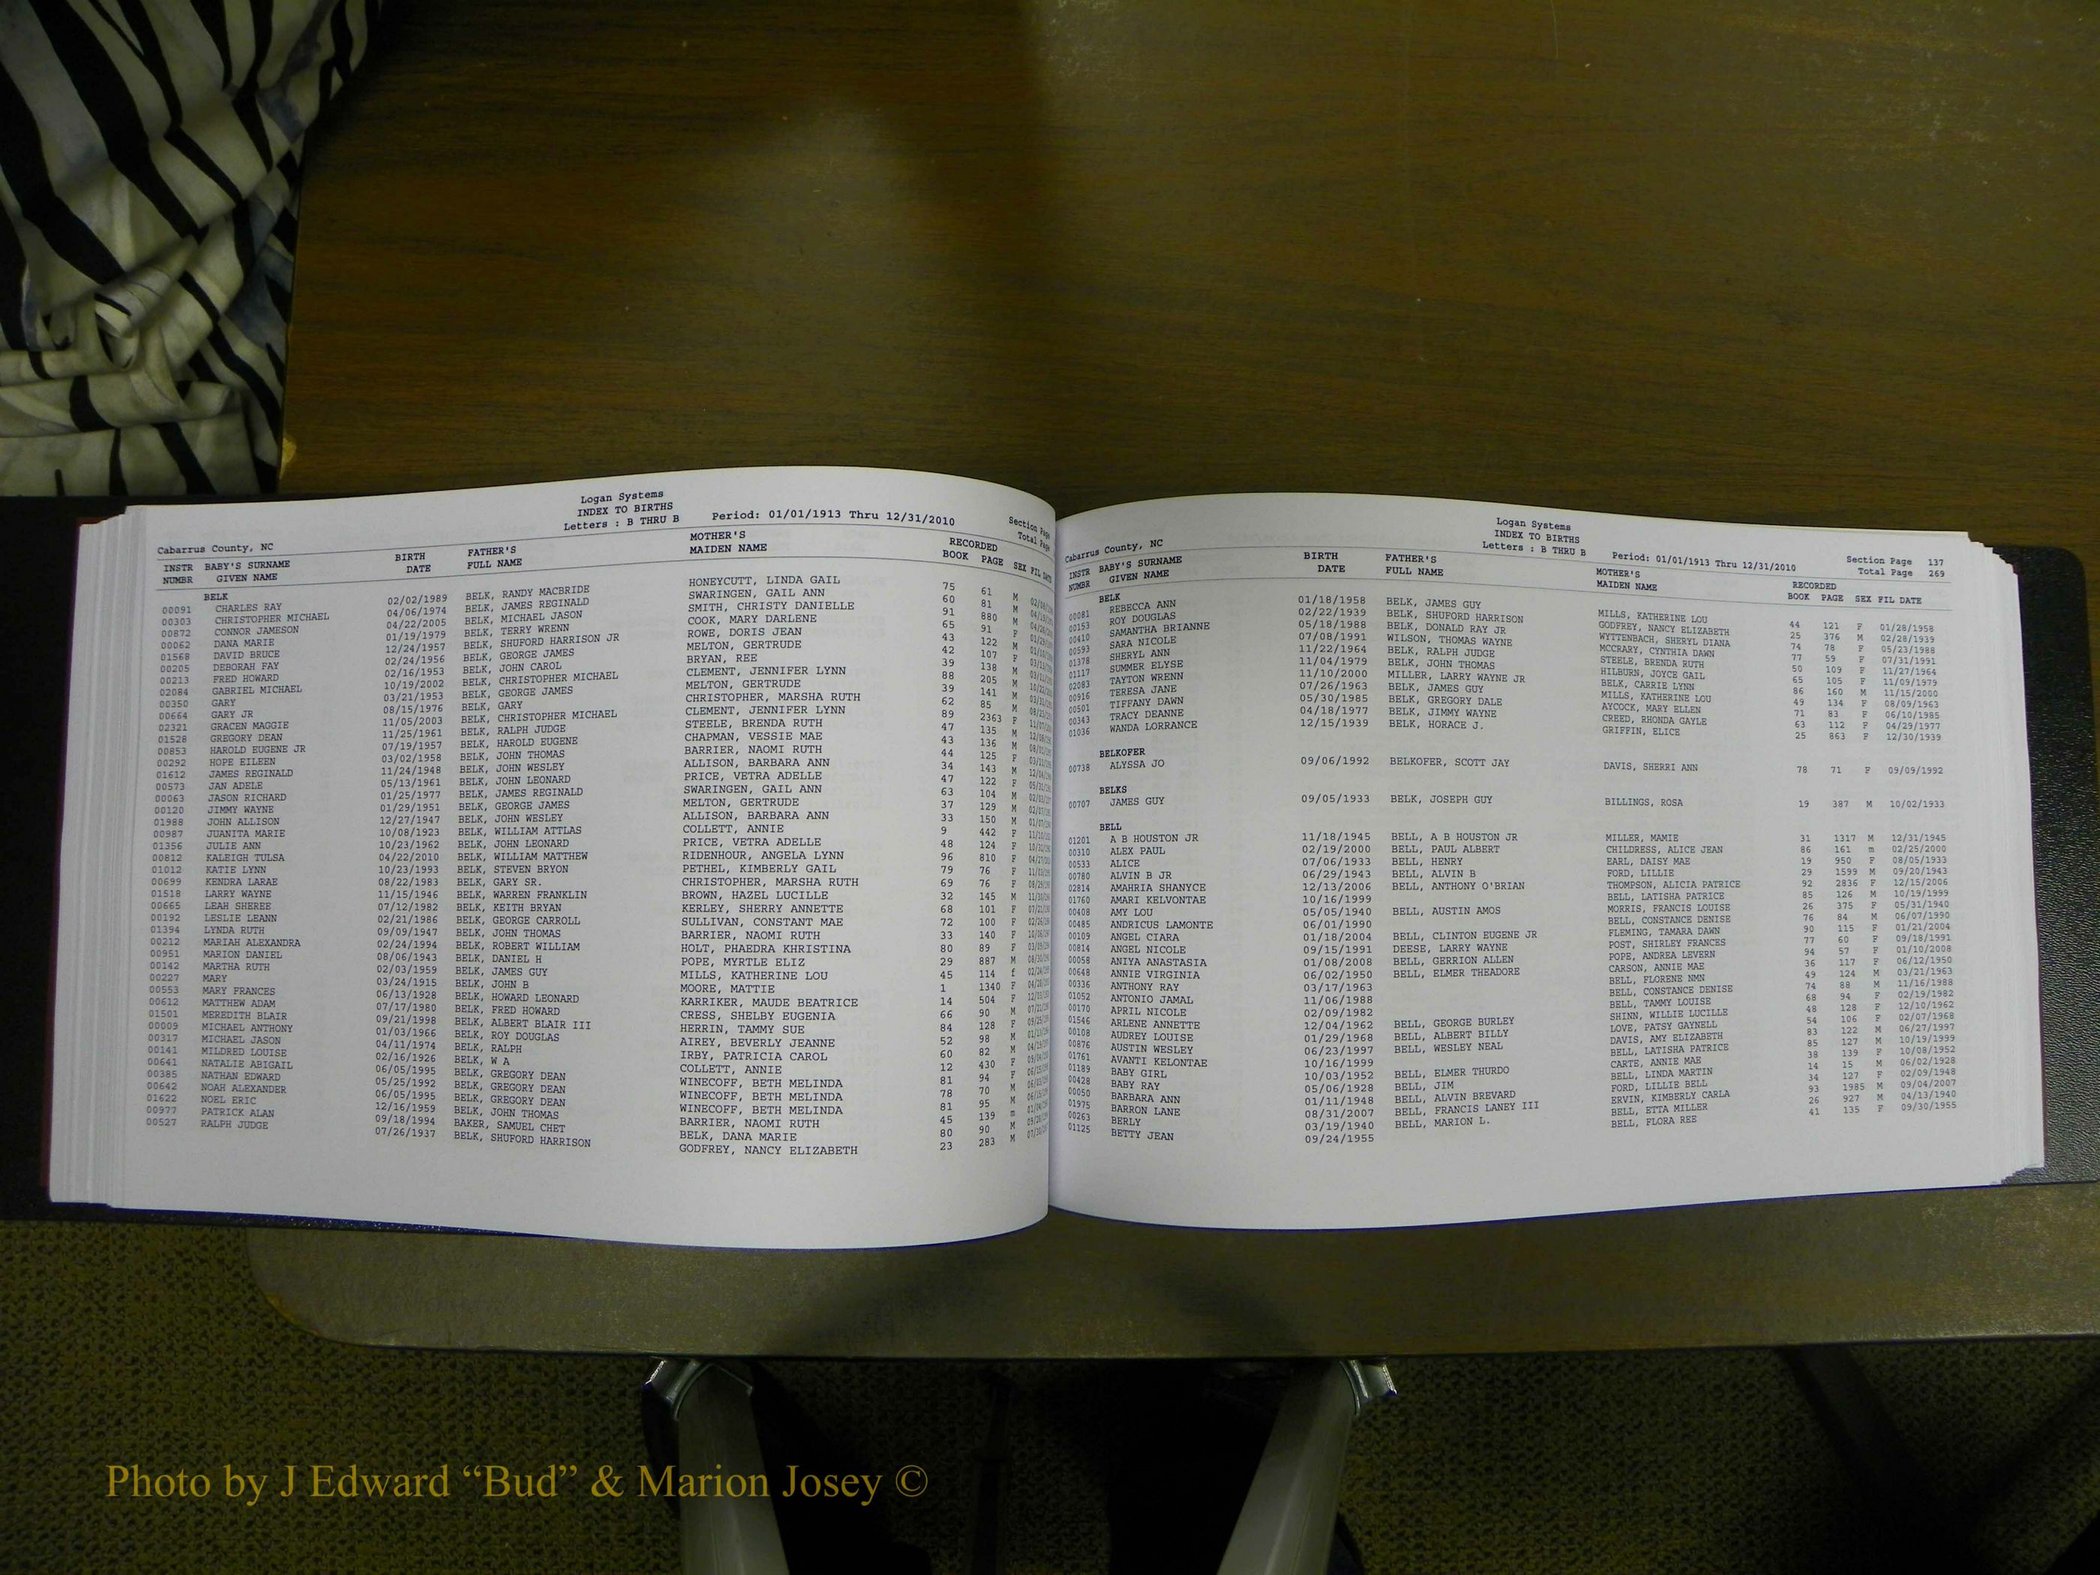 Logan Systems
INDEX TO BIRTHS
Letters : B THRU B Period: 01/01/1913 Thru 12/31/2010 Section Page
Cabarrus County, NC Total Page
INSTR BABY'S SURNAME BIRTH FATHER'S MOTHER'S RECORDED
NUMBR GIVEN NAME DATE FULL NAME MAIDEN NAME BOOK PAGE SEX FIL DATE
BELK
00091 CHARLES RAY 02/02/1989 BELK, RANDY MACBRIDE HONEYCUTT, LINDA GAIL 75 61 M
00303 CHRISTOPHER MICHAEL 04/06/1974 BELK, JAMES REGINALD SWARINGEN, GAIL ANN 60 81 M
00872 CONNOR JAMESON 04/22/2005 BELK, MICHAEL JASON SMITH, CHRISTY DANIELLE 91 880 M
00062 DANA MARIE 01/19/1979 BELK, TERRY WRENN COOK, MARY DARLENE 65 91 F
01568 DAVID BRUCE 12/24/1957 BELK, SHUFORD HARRISON JR ROWE, DORIS JEAN 43 122 M
00205 DEBORAH FAY 02/24/1956 BELK, GEORGE JAMES MELTON, GERTRUDE 42 107 F
00213 FRED HOWARD 02/16/1953 BELK, JOHN CAROL BRYAN, REE 39 138 M
02084 GABRIEL MICHAEL 10/19/2002 BELK, CHRISTOPHER MICHAEL CLEMENT, JENNIFER LYNN 88 205 M
00350 GARY 03/21/1953 BELK, GEORGE JAMES MELTON, GERTRUDE 39 141 M
00664 GARY JR 08/15/1976 BELK, GARY CHRISTOPHER, MARSHA RUTH 62 85 M
02321 GRACEN MAGGIE 11/05/2003 BELK, CHRISTOPHER MICHAEL CLEMENT, JENNIFER LYNN 89 2363 F
01528 GREGORY DEAN 11/25/1961 BELK, RALPH JUDGE STEELE, BRENDA RUTH 47 135 M
00853 HAROLD EUGENE JR 07/19/1957 BELK, HAROLD EUGENE CHAPMAN, VESSIE MAE 43 136 M
00292 HOPE EILEEN 03/02/1958 BELK, JOHN THOMAS BARRIER, NAOMI RUTH 44 125 F
01612 JAMES REGINALD 11/24/1948 BELK, JOHN WESLEY ALLISON, BARBARA ANN 34 143 M
00573 JAN ADELE 05/13/1961 BELK, JOHN LEONARD PRICE, VETRA ADELLE 47 122 F
00063 JASON RICHARD 01/25/1977 BELK, JAMES REGINALD SWARINGEN, GAIL ANN 63 104 M
00120 JIMMY WAYNE 01/29/1951 BELK, GEORGE JAMES MELTON, GERTRUDE 37 129 M
01988 JOHN ALLISON 12/27/1947 BELK, JOHN WESLEY ALLISON, BARBARA ANN 33 150 M
00987 JUANITA MARIE 10/08/1923 BELK, WILLIAM ATTLAS COLLETT, ANNIE 9 442 F
01356 JULIE ANN 10/23/1962 BELK, JOHN LEONARD PRICE, VETRA ADELLE 48 124 F
00812 KALEIGH TULSA 04/22/2010 BELK, WILLIAM MATTHEW RIDENHOUR, ANGELA LYNN 96 810 F
01012 KATIE LYNN 10/23/1993 BELK, STEVEN BRYON PETHEL, KIMBERLY GAIL 79 76 F
00699 KENDRA LARAE 08/22/1983 BELK, GARY SR. CHRISTOPHER, MARSHA RUTH 69 76 F
01518 LARRY WAYNE 11/15/1946 BELK, WARREN FRANKLIN BROWN, HAZEL LUCILLE 32 145 M
00665 LEAH SHEREE 07/12/1982 BELK, KEITH BRYAN KERLEY, SHERRY ANNETTE 68 101 F
00192 LESLIE LEANN 02/21/1986 BELK, GEORGE CARROLL SULLIVAN, CONSTANT MAE 72 100 F
01394 LYNDA RUTH 09/09/1947 BELK, JOHN THOMAS BARRIER, NAOMI RUTH 33 140 F
00212 MARIAH ALEXANDRA 02/24/1994 BELK, ROBERT WILLIAM HOLT, PHAEDRA KHRISTINA 80 89 F
00951 MARION DANIEL 08/06/1943 BELK, DANIEL H POPE, MYRTLE ELIZ 29 887 M
00142 MARTHA RUTH 02/03/1959 BELK, JAMES GUY MILLS, KATHERINE LOU 45 114 f
00227 MARY 03/24/1915 BELK, JOHN B MOORE, MATTIE 1 1340 F
00553 MARY FRANCES 06/13/1928 BELK, HOWARD LEONARD KARRIKER, MAUDE BEATRICE 14 504 F
00612 MATTHEW ADAM 07/17/1980 BELK, FRED HOWARD CRESS, SHELBY EUGENIA 66 90 M
01501 MEREDITH BLAIR 09/21/1998 BELK, ALBERT BLAIR III HERRIN, TAMMY SUE 84 128 F
00009 MICHAEL ANTHONY 01/03/1966 BELK, ROY DOUGLAS AIREY, BEVERLY JEANNE 52 98 M
00317 MICHAEL JASON 04/11/1974 BELK, RALPH IRBY, PATRICIA CAROL 60 82 M
00141 MILDRED LOUISE 02/16/1926 BELK, W A COLLETT, ANNIE 12 430 F
00641 NATALIE ABIGAIL 06/05/1995 BELK, GREGORY DEAN WINECOFF, BETH MELINDA 81 94 F
00385 NATHAN EDWARD 05/25/1992 BELK, GREGORY DEAN WINECOFF, BETH MELINDA 78 70 M
00642 NOAH ALEXANDER 06/05/1995 BELK, GREGORY DEAN WINECOFF, BETH MELINDA 81 95 M
01622 NOEL ERIC 12/16/1959 BELK, JOHN THOMAS BARRIER, NAOMI RUTH 45 139 m
00977 PATRICK ALAN 09/18/1994 BAKER, SAMUEL CHET BELK, DANA MARIE 80 90 M
00527 RALPH JUDGE 07/26/1937 BELK, SHUFORD HARRISON GODFREY, NANCY ELIZABETH 23 283 M
Logan Systems
INDEX TO BIRTHS
Letters : B THRU B Period: 01/01/1913 Thru 12/31/2010 Section Page 137
Cabarrus County, NC Total Page 269
INSTR BABY'S SURNAME BIRTH FATHER'S MOTHER'S RECORDED
NUMBR GIVEN NAME DATE FULL NAME MAIDEN NAME BOOK PAGE SEX FIL DATE
BELK
00081 REBECCA ANN 01/18/1958 BELK, JAMES GUY MILLS, KATHERINE LOU 44 121 F 01/28/1958
00153 ROY DOUGLAS 02/22/1939 BELK, SHUFORD HARRISON GODFREY, NANCY ELIZABETH 25 376 M 02/28/1939
00410 SAMANTHA BRIANNE 05/18/1988 BELK, DONALD RAY JR WYTTENBACH, SHERYL DIANA 74 78 F 05/23/1988
00593 SARA NICOLE 07/08/1991 WILSON, THOMAS WAYNE MCCRARY, CYNTHIA DAWN 77 59 F 07/31/1991
01378 SHERYL ANN 11/22/1964 BELK, RALPH JUDGE STEELE, BRENDA RUTH 50 109 F 11/27/1964
01117 SUMMER ELYSE 11/04/1979 BELK, JOHN THOMAS HILBURN, JOYCE GAIL 65 105 F 11/09/1979
02083 TAYTON WRENN 11/10/2000 MILLER, LARRY WAYNE JR BELK, CARRIE LYNN 86 160 M 11/15/2000
00916 TERESA JANE 07/26/1963 BELK, JAMES GUY MILLS, KATHERINE LOU 49 134 F 08/09/1963
00501 TIFFANY DAWN 05/30/1985 BELK, GREGORY DALE AYCOCK, MARY ELLEN 71 83 F 06/10/1985
00343 TRACY DEANNE 04/18/1977 BELK, JIMMY WAYNE CREED, RHONDA GAYLE 63 112 F 04/29/1977
01036 WANDA LORRANCE 12/15/1939 BELK, HORACE J. GRIFFIN, ELICE 25 863 F 12/30/1939
BELKOFER
00738 ALYSSA JO 09/06/1992 BELKOFER, SCOTT JAY DAVIS, SHERRI ANN 78 71 F 09/09/1992
BELKS
00707 JAMES GUY 09/05/1933 BELK, JOSEPH GUY BILLINGS, ROSA 19 387 M 10/02/1933
BELL
01201 A B HOUSTON JR 11/18/1945 BELL, A B HOUSTON JR MILLER, MAMIE 31 1317 M 12/31/1945
00310 ALEX PAUL 02/19/2000 BELL, PAUL ALBERT CHILDRESS, ALICE JEAN 86 161 m 02/25/2000
00533 ALICE 07/06/1933 BELL, HENRY EARL, DAISY MAE 19 950 F 08/05/1933
00780 ALVIN B JR 06/29/1943 BELL, ALVIN B FORD, LILLIE 29 1599 M 09/20/1943
02814 AMAHRIA SHANYCE 12/13/2006 BELL, ANTHONY O'BRIAN THOMPSON, ALICIA PATRICE 92 2836 F 12/15/2006
01760 AMARI KELVONTAE 10/16/1999 BELL, LATISHA PATRICE 85 126 M 10/19/1999
00408 AMY LOU 05/05/1940 BELL, AUSTIN AMOS MORRIS, FRANCIS LOUISE 26 375 F 05/31/1940
00485 ANDRICUS LAMONTE 06/01/1990 BELL, CONSTANCE DENISE 76 84 M 06/07/1990
00109 ANGEL CIARA 01/18/2004 BELL, CLINTON EUGENE JR FLEMING, TAMARA DAWN 90 115 F 01/21/2004
00814 ANGEL NICOLE 09/15/1991 DEESE, LARRY WAYNE POST, SHIRLEY FRANCES 77 60 F 09/18/1991
00058 ANIYA ANASTASIA 01/08/2008 BELL, GERRION ALLEN POPE, ANDREA LEVERN 94 57 F 01/10/2008
00648 ANNIE VIRGINIA 06/02/1950 BELL, ELMER THEADORE CARSON, ANNIE MAE 36 117 F 06/12/1950
00336 ANTHONY RAY 03/17/1963 BELL, FLORENE NMN 49 124 M 03/21/1963
01052 ANTONIO JAMAL 11/06/1988 BELL, CONSTANCE DENISE 74 88 M 11/16/1988
00170 APRIL NICOLE 02/09/1982 BELL, TAMMY LOUISE 68 94 F 02/19/1982
01546 ARLENE ANNETTE 12/04/1962 BELL, GEORGE BURLEY SHINN, WILLIE LUCILLE 48 128 F 12/10/1962
00108 AUDREY LOUISE 01/29/1968 BELL, ALBERT BILLY LOVE, PATSY GAYNELL 54 106 F 02/07/1968
00876 AUSTIN WESLEY 06/23/1997 BELL, WESLEY NEAL DAVIS, AMY ELIZABETH 83 122 M 06/27/1997
01761 AVANTI KELONTAE 10/16/1999 BELL, LATISHA PATRICE 85 127 M 10/19/1999
01189 BABY GIRL 10/03/1952 BELL, ELMER THURDO CARTE, ANNIE MAE 38 139 F 10/08/1952
00428 BABY RAY 05/06/1928 BELL, JIM BELL, LINDA MARTIN 14 15 M 06/02/1928
00050 BARBARA ANN 01/11/1948 BELL, ALVIN BREVARD FORD, LILLIE BELL 34 127 F 02/09/1948
01975 BARRON LANE 08/31/2007 BELL, FRANCIS LANEY III ERVIN, KIMBERLY CARLA 93 1985 M 09/04/2007
00263 BERLY 03/19/1940 BELL, MARION L. BELL, ETTA MILLER 26 927 M 04/13/1940
01125 BETTY JEAN 09/24/1955 BELL, FLORA REE 41 135 F 09/30/1955
Photo by J Edward “Bud” & Marion Josey ©